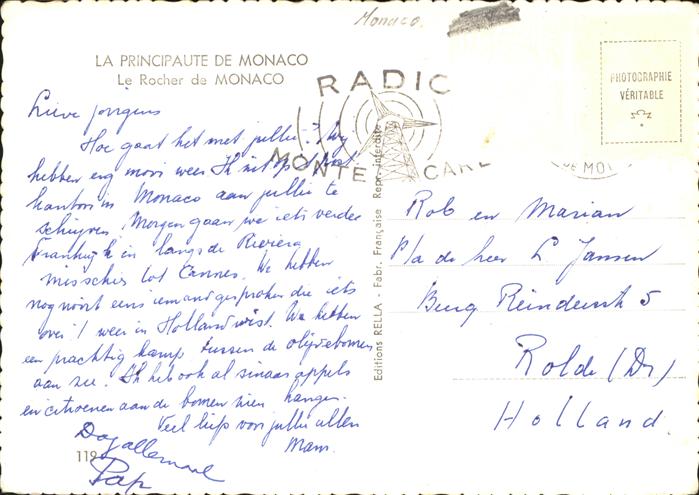 Monaco.
LA PRINCIPAUTE DE MONACO
Le Rocher de MONACO
RADIO
MONTE CARL
PHOTOGRAPHIE
VÉRITABLE
DE MO
Lieve jongens
Hoe gaat het met jullie? Wij
hebben erg mooi weer Ik zit op post
kantoor in Monaco aan jullie te
schrijven. Morgen gaan we iets verder
Frankrijk in langs de Riviera
misschien tot Cannes. We hebben
nog nooit eens iemand gesproken die iets
over 't weer in Holland wist. We hebben
een prachtig kamp tussen de olijvebomen
aan zee. Ik heb ook al sinaasappels
en citroenen aan de bomen zien hangen.
Veel liefs voor jullie allen
Mam.
Dag allemaal
Pap
119
Editions RELLA - Fabr. Française Repr. Interdite
Rob en Marian
P/a de heer L. Jansen
Burg Reinderstr 5
Rolde (Dr)
Holland.